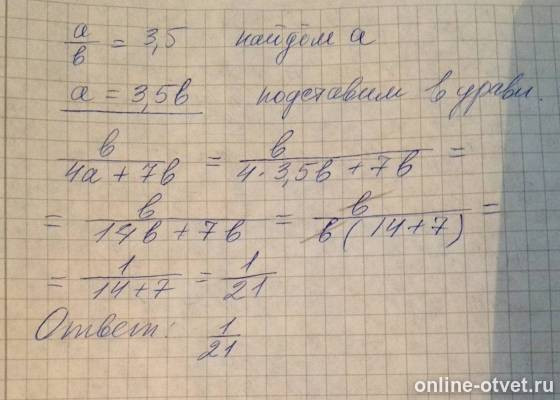 a/в = 3,5 найдём a
a = 3,5в подставим в уравн.
в/(4a + 7в) = в/(4·3,5в + 7в) =
= в/(14в + 7в) = в/(в(14+7)) =
= 1/(14+7) = 1/21
Ответ: 1/21
online-otvet.ru